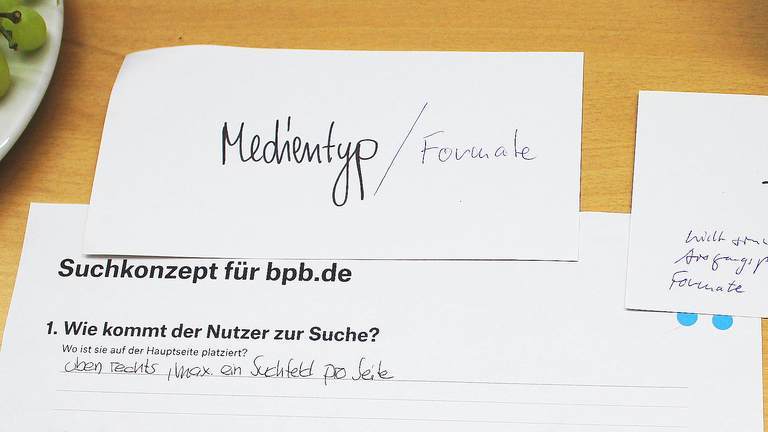 Medientyp / Formate
nicht
Formate
Suchkonzept für bpb.de
1. Wie kommt der Nutzer zur Suche?
Wo ist sie auf der Hauptseite platziert?
oben rechts, max. ein Suchfeld pro Seite